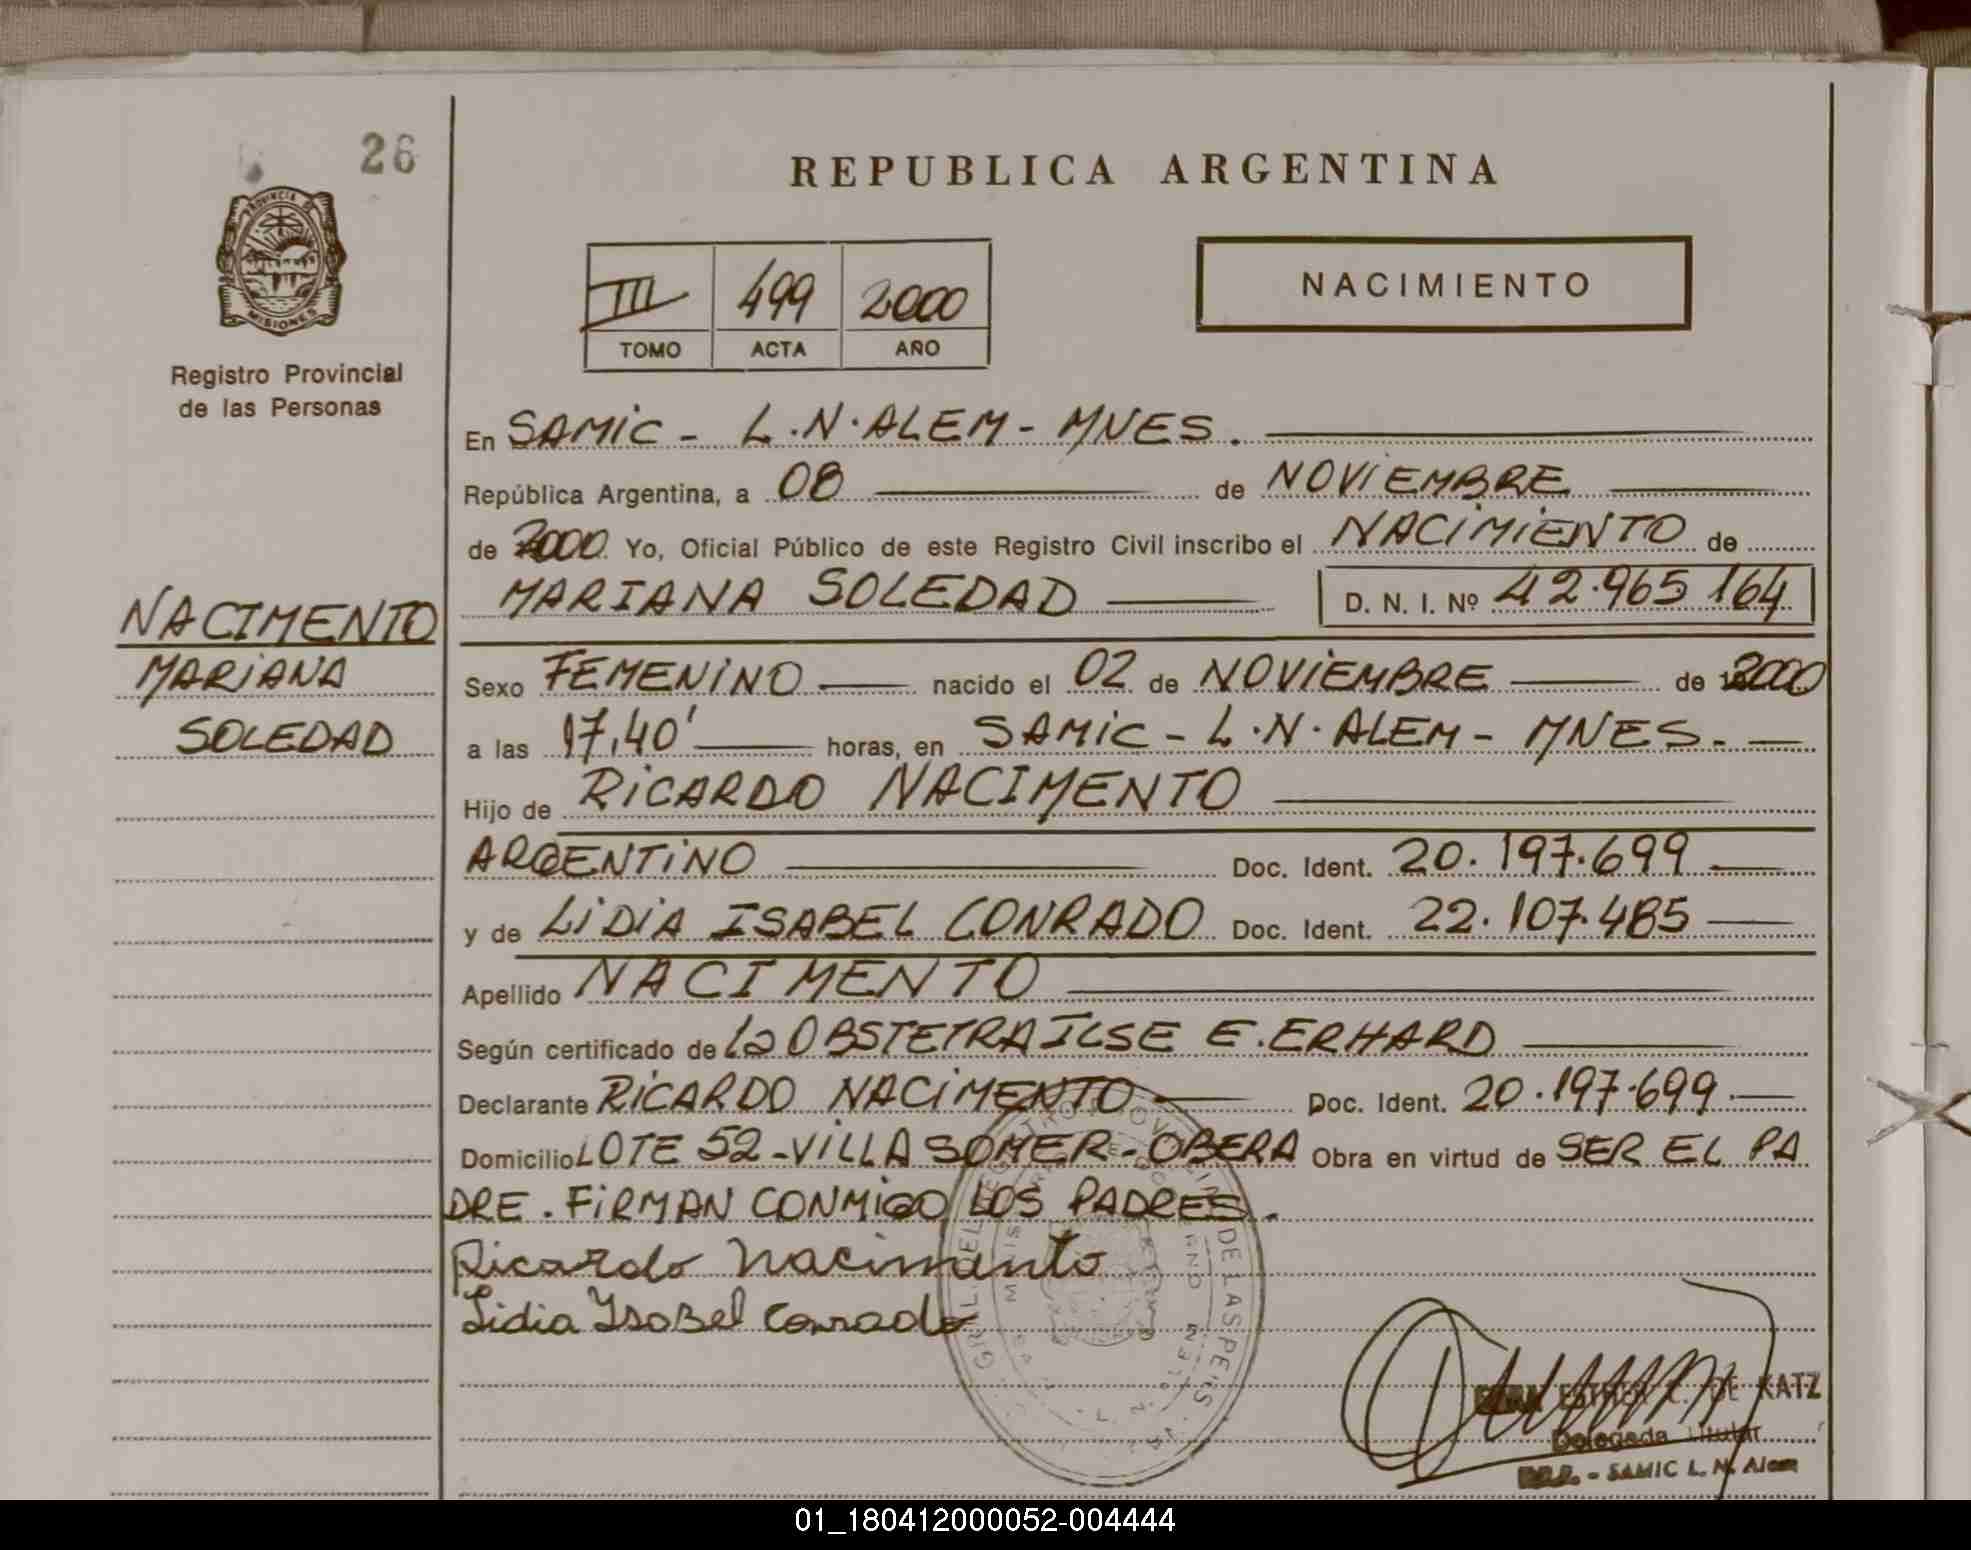 26
REPUBLICA ARGENTINA
PROVINCIA DE
MISIONES
Registro Provincial
de las Personas
III 499 2000
TOMO ACTA AÑO
NACIMIENTO
En SAMIC - L.N. ALEM - MNES.
República Argentina, a 08 de NOVIEMBRE
de 2000. Yo, Oficial Público de este Registro Civil inscribo el NACIMIENTO de
MARIANA SOLEDAD D. N. I. Nº 42.965 164
NACIMENTO
MARIANA
SOLEDAD
Sexo FEMENINO nacido el 02 de NOVIEMBRE de 2000
a las 17,40' horas, en SAMIC - L.N. ALEM - MNES.
Hijo de RICARDO NACIMENTO
ARGENTINO Doc. Ident. 20.197.699
y de LIDIA ISABEL CONRADO Doc. Ident. 22.107.485
Apellido NACIMENTO
Según certificado de La OBSTETRA ILSE E. ERHARD
Declarante RICARDO NACIMENTO Doc. Ident. 20.197.699
Domicilio LOTE 52 - VILLA SOMER - OBERA Obra en virtud de SER EL PA
DRE. FIRMAN CONMIGO LOS PADRES.
Ricardo Nacimanto
Lidia Ysabel Conrado
ESTHER DE KATZ
Delegada Titular
SAMIC L. N. Alem
01_180412000052-004444